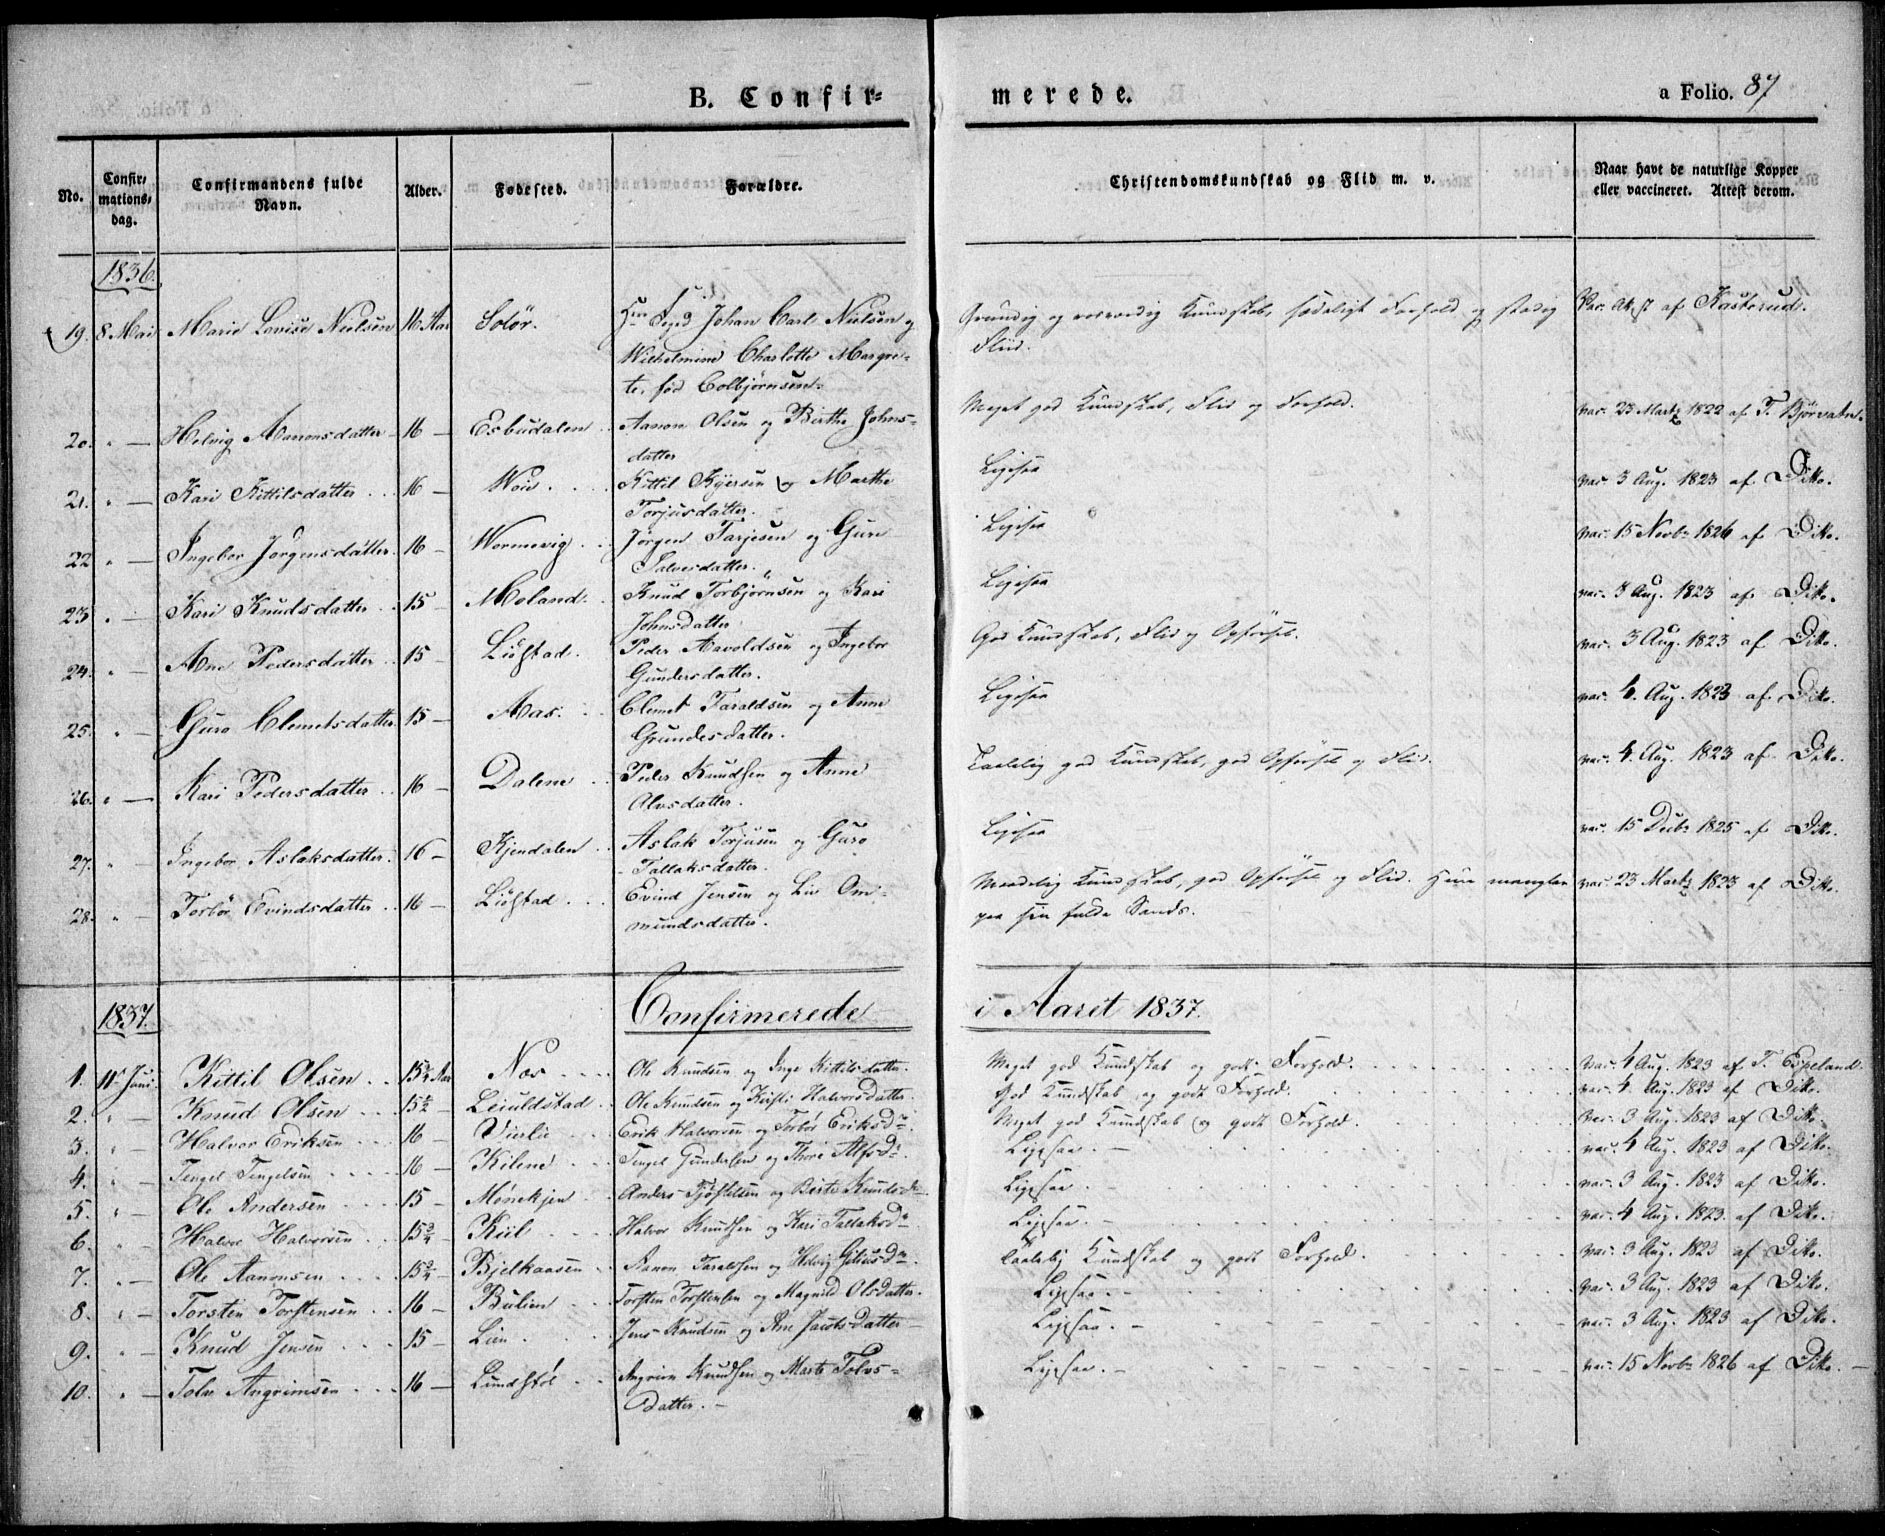 B. Confir=
merede.
a Folio. 87
No.
Confir-
mations-
dag.
Confirmandens fulde
Navn.
Alder.
Fødested.
Forældre.
Christendomskundskab og Flid m. v.
Naar havt de naturlige Kopper
eller vaccineret. Attest derom.
1836.
19. 8 Mai Marie Lovise Nielsen 16 Aar Solör. Johan Carl Nielsen og Kundskab, sædeligt Forhold og stadig af Kasterud.
Wilhelmine Charlotte Margre- Fliid.
te, fød Colbjørnsen
20. " — Helvig Aanonsdatter 16 — Esbudalen Aanon Olsen og Birthe Johns- Meget god Kundskab, Flid og Forhold. vac. 23 Martz 1822 af T. Bjørvatn.
datter
21. " — Kari Kittilsdatter 16 — Woie Kittil og Marthe Ligesaa vac. 3 Aug. 1823 af Ditto.
Torjusdatter.
22 " — Ingebor Jørgensdatter 16 — Wormevig Jørgen Tarjesen og Guro Ligesaa vac. 15 Novbr 1826 af Ditto.
Salvesdatter.
23. " — Kari Knudsdatter 15 — Moland Knud Torbjørnsen og Kari Ligesaa vac. 3 Aug. 1823 af Ditto.
Johnsdatter
24. " — Ane Pedersdatter 15 — Liøstad. Peder Aavoldsen og Ingebor God Kundskab, Flid og Opførsel. vac. 3 Aug. 1823 af Ditto.
Gundersdatter.
25. " — Guro Clemetsdatter 15 — Aas. Clemet Taraldsen og Anne Ligesaa vac. 4. Aug. 1823 af Ditto.
Grundesdatter.
26. " — Kari Pedersdatter 16 — Dalene Peder Knudsen og Anne Taalelig god Kundskab, god Opførsel og Flid. vac. 4. Aug. 1823 af Ditto.
Alvsdatter.
27. " — Ingebor Aslaksdatter 16 — Kjendalen Aslak Torjusen og Guro Ligesaa vac. 15 Decbr 1825 af Ditto.
Tallaksdatter.
28. " — Torbør Evindsdatter 16 — Liøstad Evind Jensen og Liv Om- Maadelig Kundskab, god Opførsel og Flid. Hun mangler vac. 23 Martz 1823 af Ditto.
mundsdatter. paa sin fulde Sands.
1837.
Confirmerede i Aaret 1837.
1. 11te Juni Kittil Olsen 15¾ Aar Næs Ole Knudsen og Inge Kittilsdatter. Meget god Kundskab og godt Forhold. vac. 4 Aug. 1823 af T. Espeland
2. " — Knud Olsen 15½ — Leiuldstad Ole Knudsen og Kirsti Halvorsdatter. God Kundskab og godt Forhold. vac. 4. Aug. 1823 af Ditto.
3. " — Halvor Eriksen 16 — Vierlie Erik Halvorsen og Torbør Eriksdr. Meget god Kundskab og godt Forhold. vac. 3 Aug. 1823 af Ditto.
4. " — Tengel Tengelsen 16 — Kilene Tengel Gundersen og Thore Alfsdr. Ligesaa. vac. 4 Aug. 1823 af Ditto.
5. " — Ole Andersen 15 — Mønekjen Anders Tjøstelsen og Birte Knudsdr Ligesaa. vac. 3 Aug. 1823 af Ditto.
6. " — Halvor Halvorsen 15¾ — Kiil Halvor Knudsen og Kari Tallaksdr Ligesaa. vac. 4 Aug. 1823. af Ditto.
7. " — Ole Aanonsen 15¾ — Bjelkaasen Aanon Taraldsen og Helvig Giliusdr. Taalelig Kundskab og godt Forhold. vac. 3 Aug. 1823 af Ditto.
8. " — Torsten Torstensen 16 — Bulien Torsten Torstensen og Magnild Olsdatter. Ligesaa. vac. 3 Aug. 1823 af Ditto.
9. " — Knud Jensen 15 — Lien Jens Knudsen og Ane Jacobsdatter Ligesaa. vac. 3 Aug. 1823 af Ditto.
10. " — Tolv Angrimsen 16 — Lundstøl Angrim Knudsen og Marte Tolvs- Ligesaa. vac. 15 Novbr 1826 af Ditto.
datter.